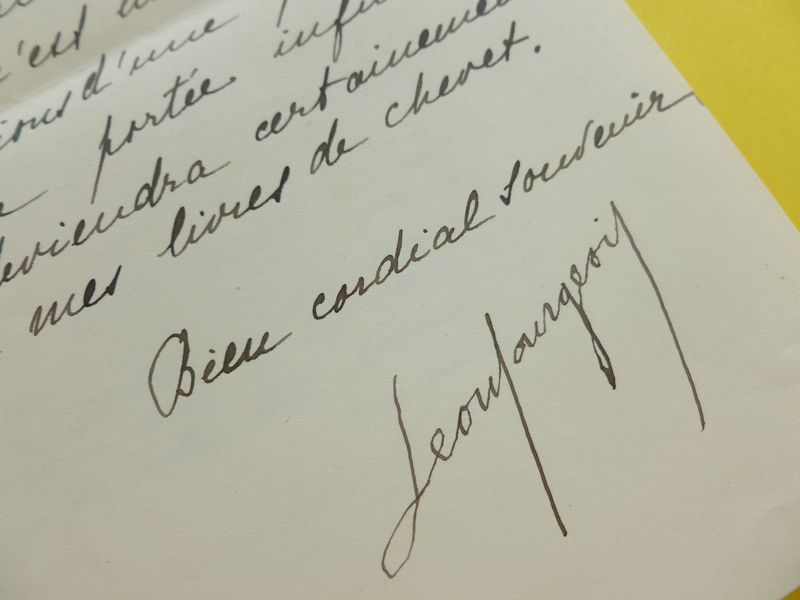 c'est
d'une
portée
deviendra certainement
mes livres de chevet.
Bien cordial souvenir
Leon Bourgeois